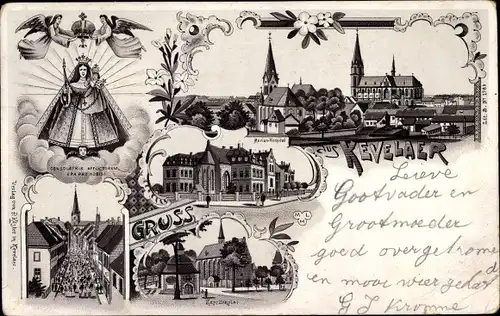 CONSOLATRIX AFFLICTORUM
ORA PRO NOBIS
Marien-Hospital
GRUSS
AUS KEVELAER
Kapellenplatz
Verlag von
in Kevelaer
Lieve
Grootvader en
Grootmoeder
goed overgekomen
en mooi weer gehad
G J Kromme